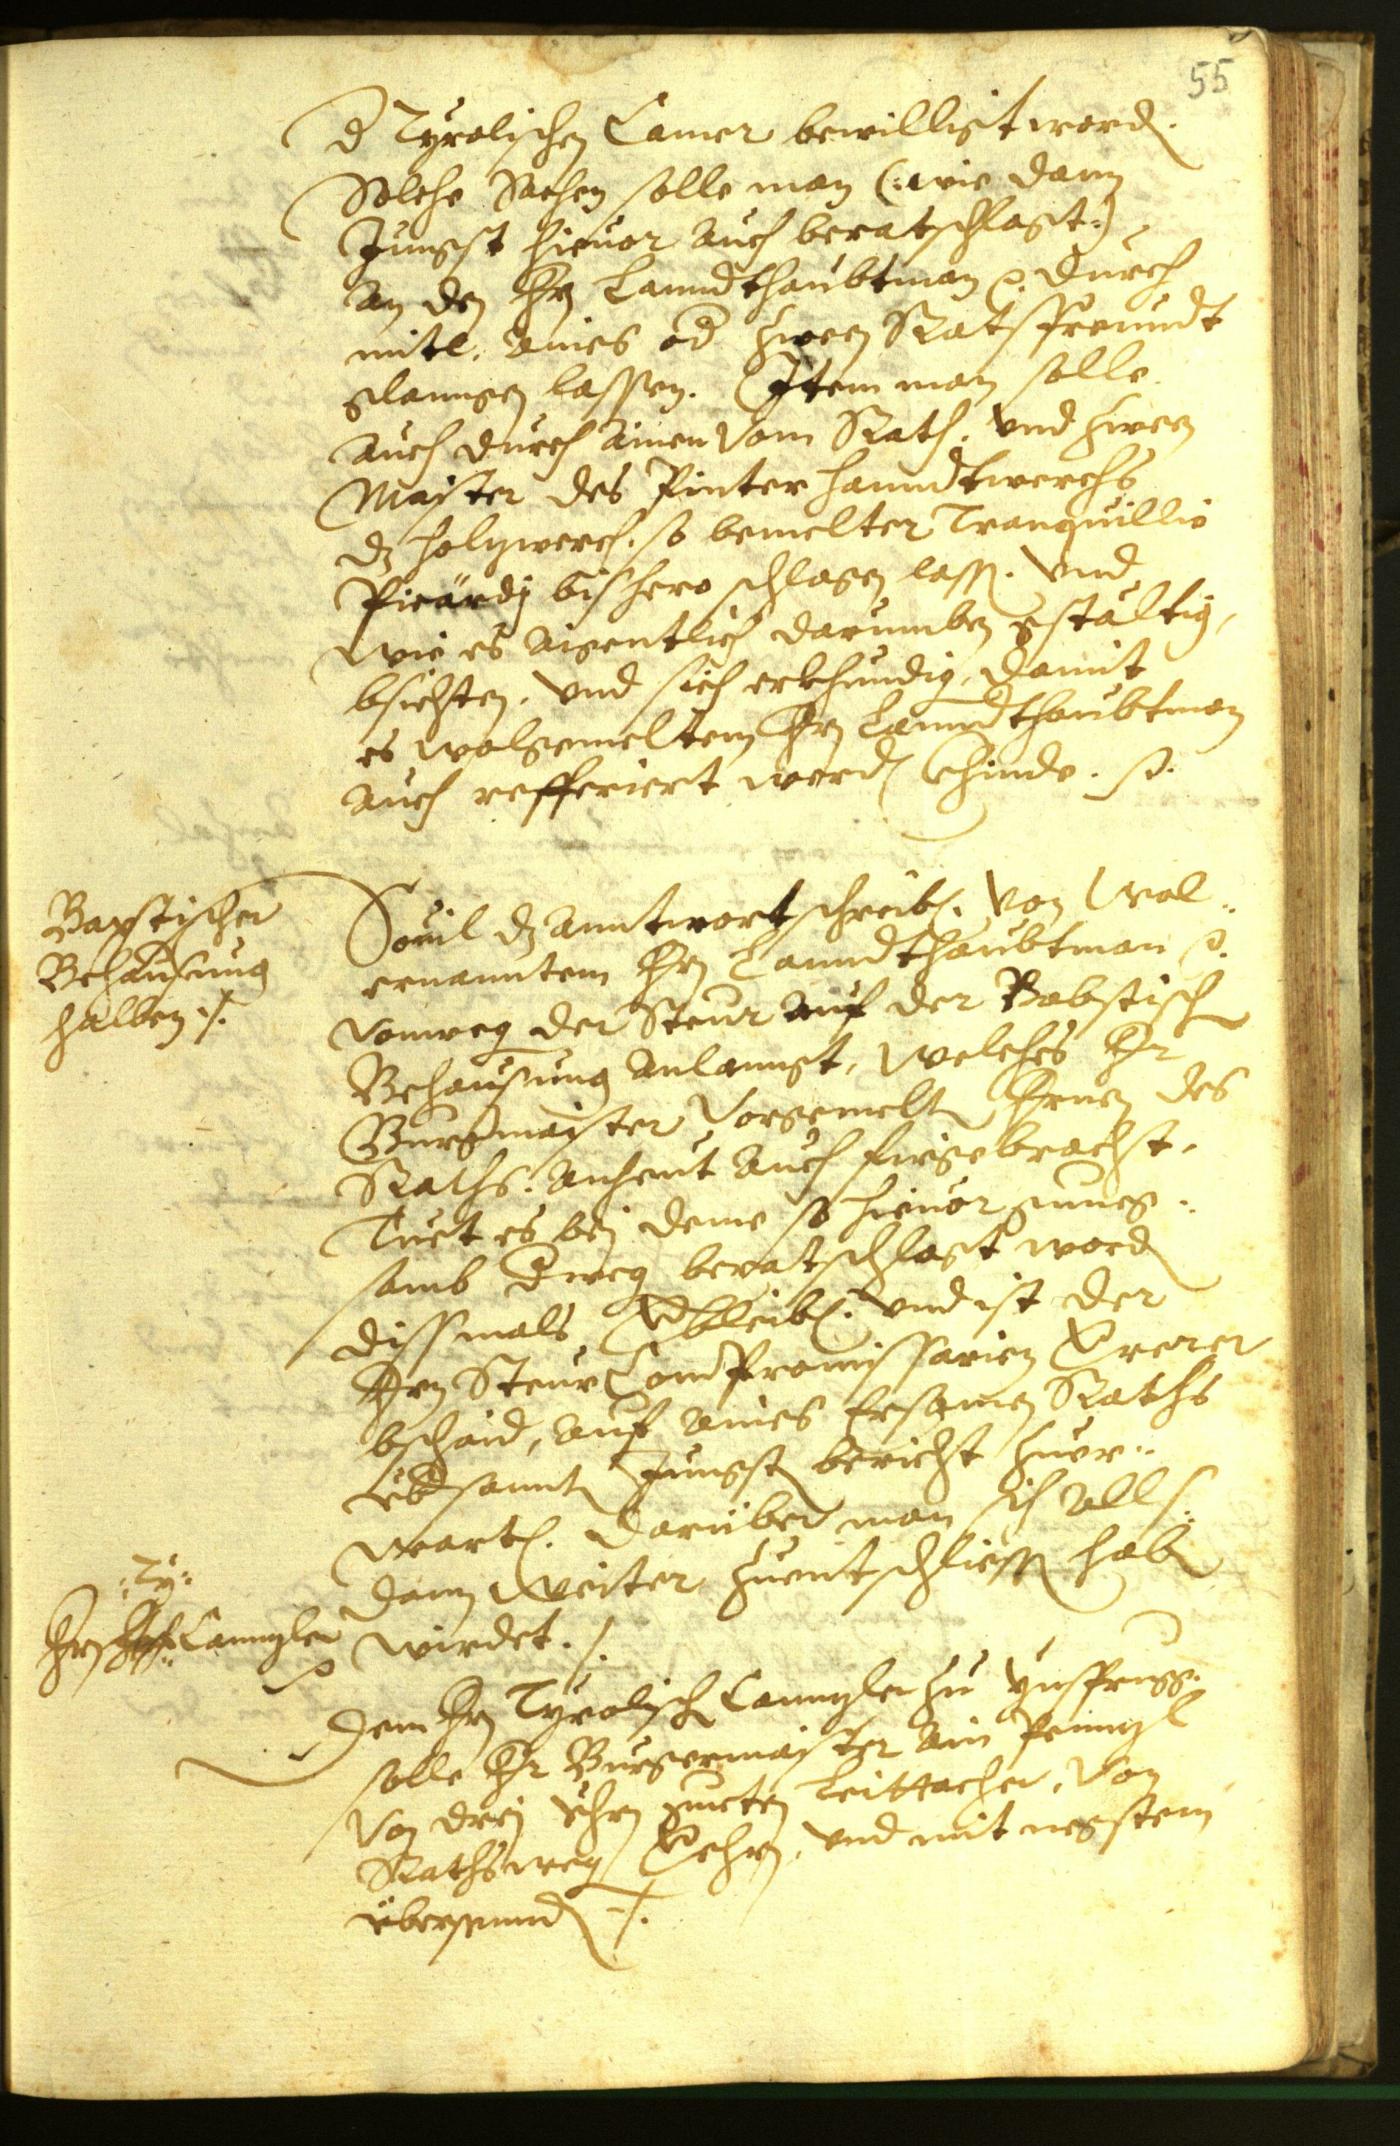 55
d Tyrolischen Camer bewilligt word.
Solche Sachen solle man (: wie dann
Jungst hieuor auch beratschlagt :)
an den Hrn Lanndthaubtman p. durch
mitl. aines od zween Ratsfreundt
glanngen lassen. Item man solle
auch durch ainen vom Rath. und zween
Maister des Pinter hanndtwerchs
dz holzwerch. so bemelter Tranquillio
Picardj bishero schlagen lass. und
wie es aigentlich darumben gstaltig,
bsichten. und sich erkhundig, damit
es wolgemeltem Hrn Lanndthaubtman
auch refferiert werd khinde. p.
Bapstischer
Behausung
halben ./.
Souil dz anntwort schreib. von Wol-
ernanntem Hrn Lanndthaubtman p.
vonweg der Steur auf der Babstisch
Behausung anlanngt, welches Hr
Burgmaister vorgemelt Herrn des
Raths. anheut auch firgebracht.
Tuet es bej deme so hieuor gnueg-
samb dweg beratschlagt word
dissmals verbleib. und ist der
Hrn Steur Compromissarien
bschaid, auf aines Ersamen Raths
jungst bericht zuer-
wart. darüber man sich alls-
dann weiter zuentschliess hab
wirdet. /.
: Ty :
Hrn Canntzler
p
Dem Hrn Tyrolisch Canntzler zu Ynsprugg.
solle Hr Burgermaister ain Panntzl
von drej Yhrn gueten Leittacher, von
Rathsweg Verehrn, und mit negstem
übersennd ./.